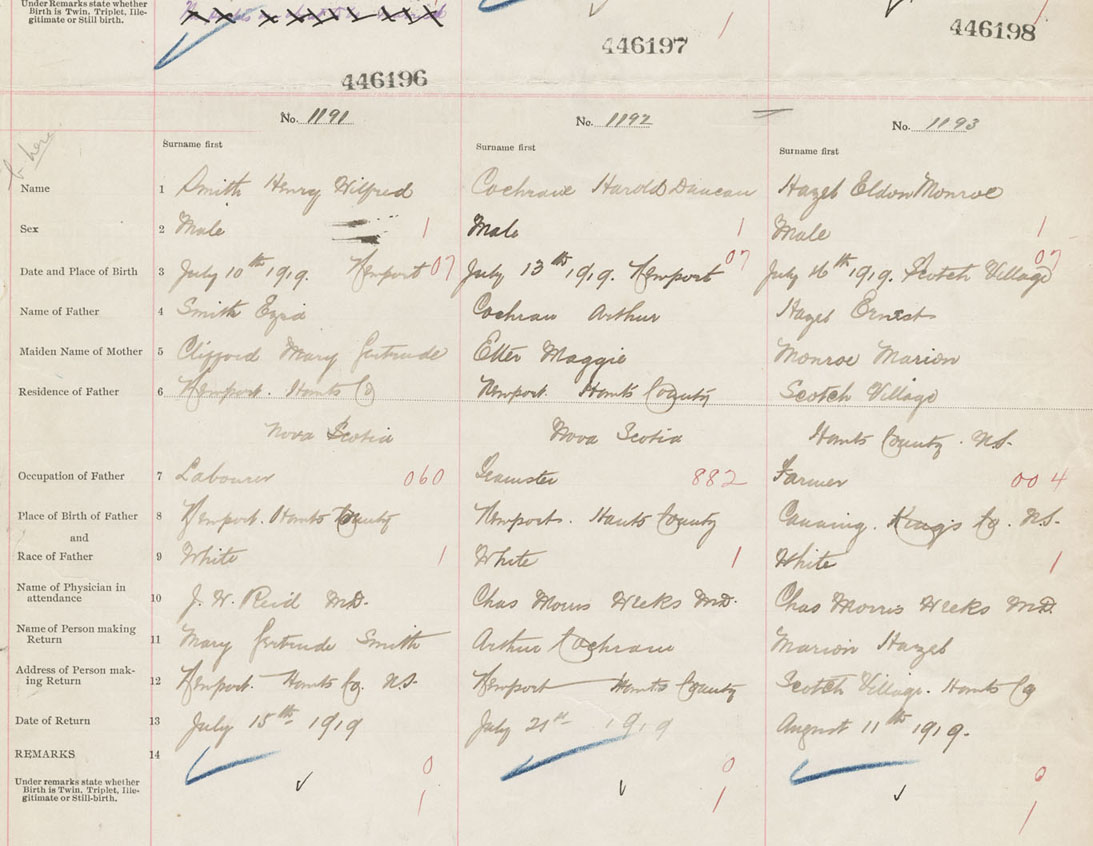 Under Remarks state whether
Birth is Twin, Triplet, Ille-
gitimate or Still birth.
1
1
446196
446197
446198
No. 1191
No. 1192
No. 1193
Surname first
Surname first
Surname first
here
Name 1 Smith Henry Wilfred
Cochrane Harold Duncan
Hazel Eldon Monroe
Sex 2 Male 1
Male 1
Male 1
Date and Place of Birth 3 July 10th 1919. Newport 07
July 13th 1919. Newport 07
July 16th 1919. Scotch Village 07
Name of Father 4 Smith Ezra
Cochran Arthur
Hazel Ernest
Maiden Name of Mother 5 Clifford Mary Gertrude
Etter Maggie
Monroe Marion
Residence of Father 6 Newport. Hants Co
Newport. Hants County
Scotch Village
Nova Scotia
Nova Scotia
Hants County. N.S.
Occupation of Father 7 Labourer 060
Teamster 882
Farmer 004
Place of Birth of Father 8 Newport. Hants County
Newport. Hants County
Canning. Kings Co. N.S.
and
Race of Father 9 White 1
White 1
White 1
Name of Physician in
attendance 10 J. W. Reid M.D.
Chas Morris Weeks M.D.
Chas Morris Weeks M.D.
Name of Person making
Return 11 Mary Gertrude Smith
Arthur Cochran
Marion Hazel
Address of Person mak-
ing Return 12 Newport. Hants Co. N.S.
Newport Hants County
Scotch Village. Hants Co
Date of Return 13 July 15th 1919
July 21st 1919
August 11th 1919.
REMARKS 14
Under remarks state whether
Birth is Twin, Triplet, Ille-
gitimate or Still-birth.
0
1
0
1
0
1